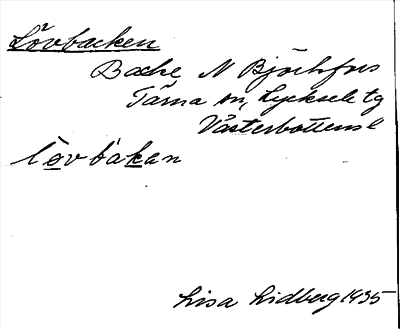 Lövbacken
Backe, N Björkfors
Tärna sn, Lycksele tg
Västerbottens l
lövbakan
Lisa Lidberg 1935